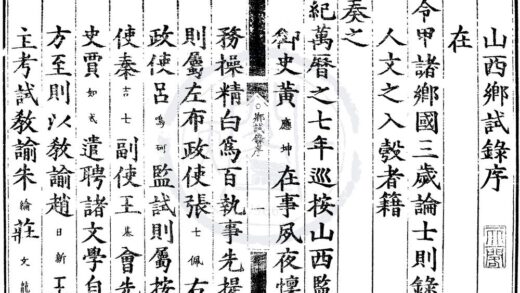 山西鄉試錄序
在
令甲諸鄉國三歲論士則錄
人文之入彀者籍
奏之
紀萬曆之七年巡按山西監
御史黃應坤在事夙夜懍
鄉試錄序 一
務操精白爲百執事先提
則屬左布政使張士佩右
政使呂鳴珂監試則屬按
使秦吉士副使王基會先
史賈如式遣聘諸文學自
方至則以敎諭趙日新王
主考試敎諭朱綸莊文龍